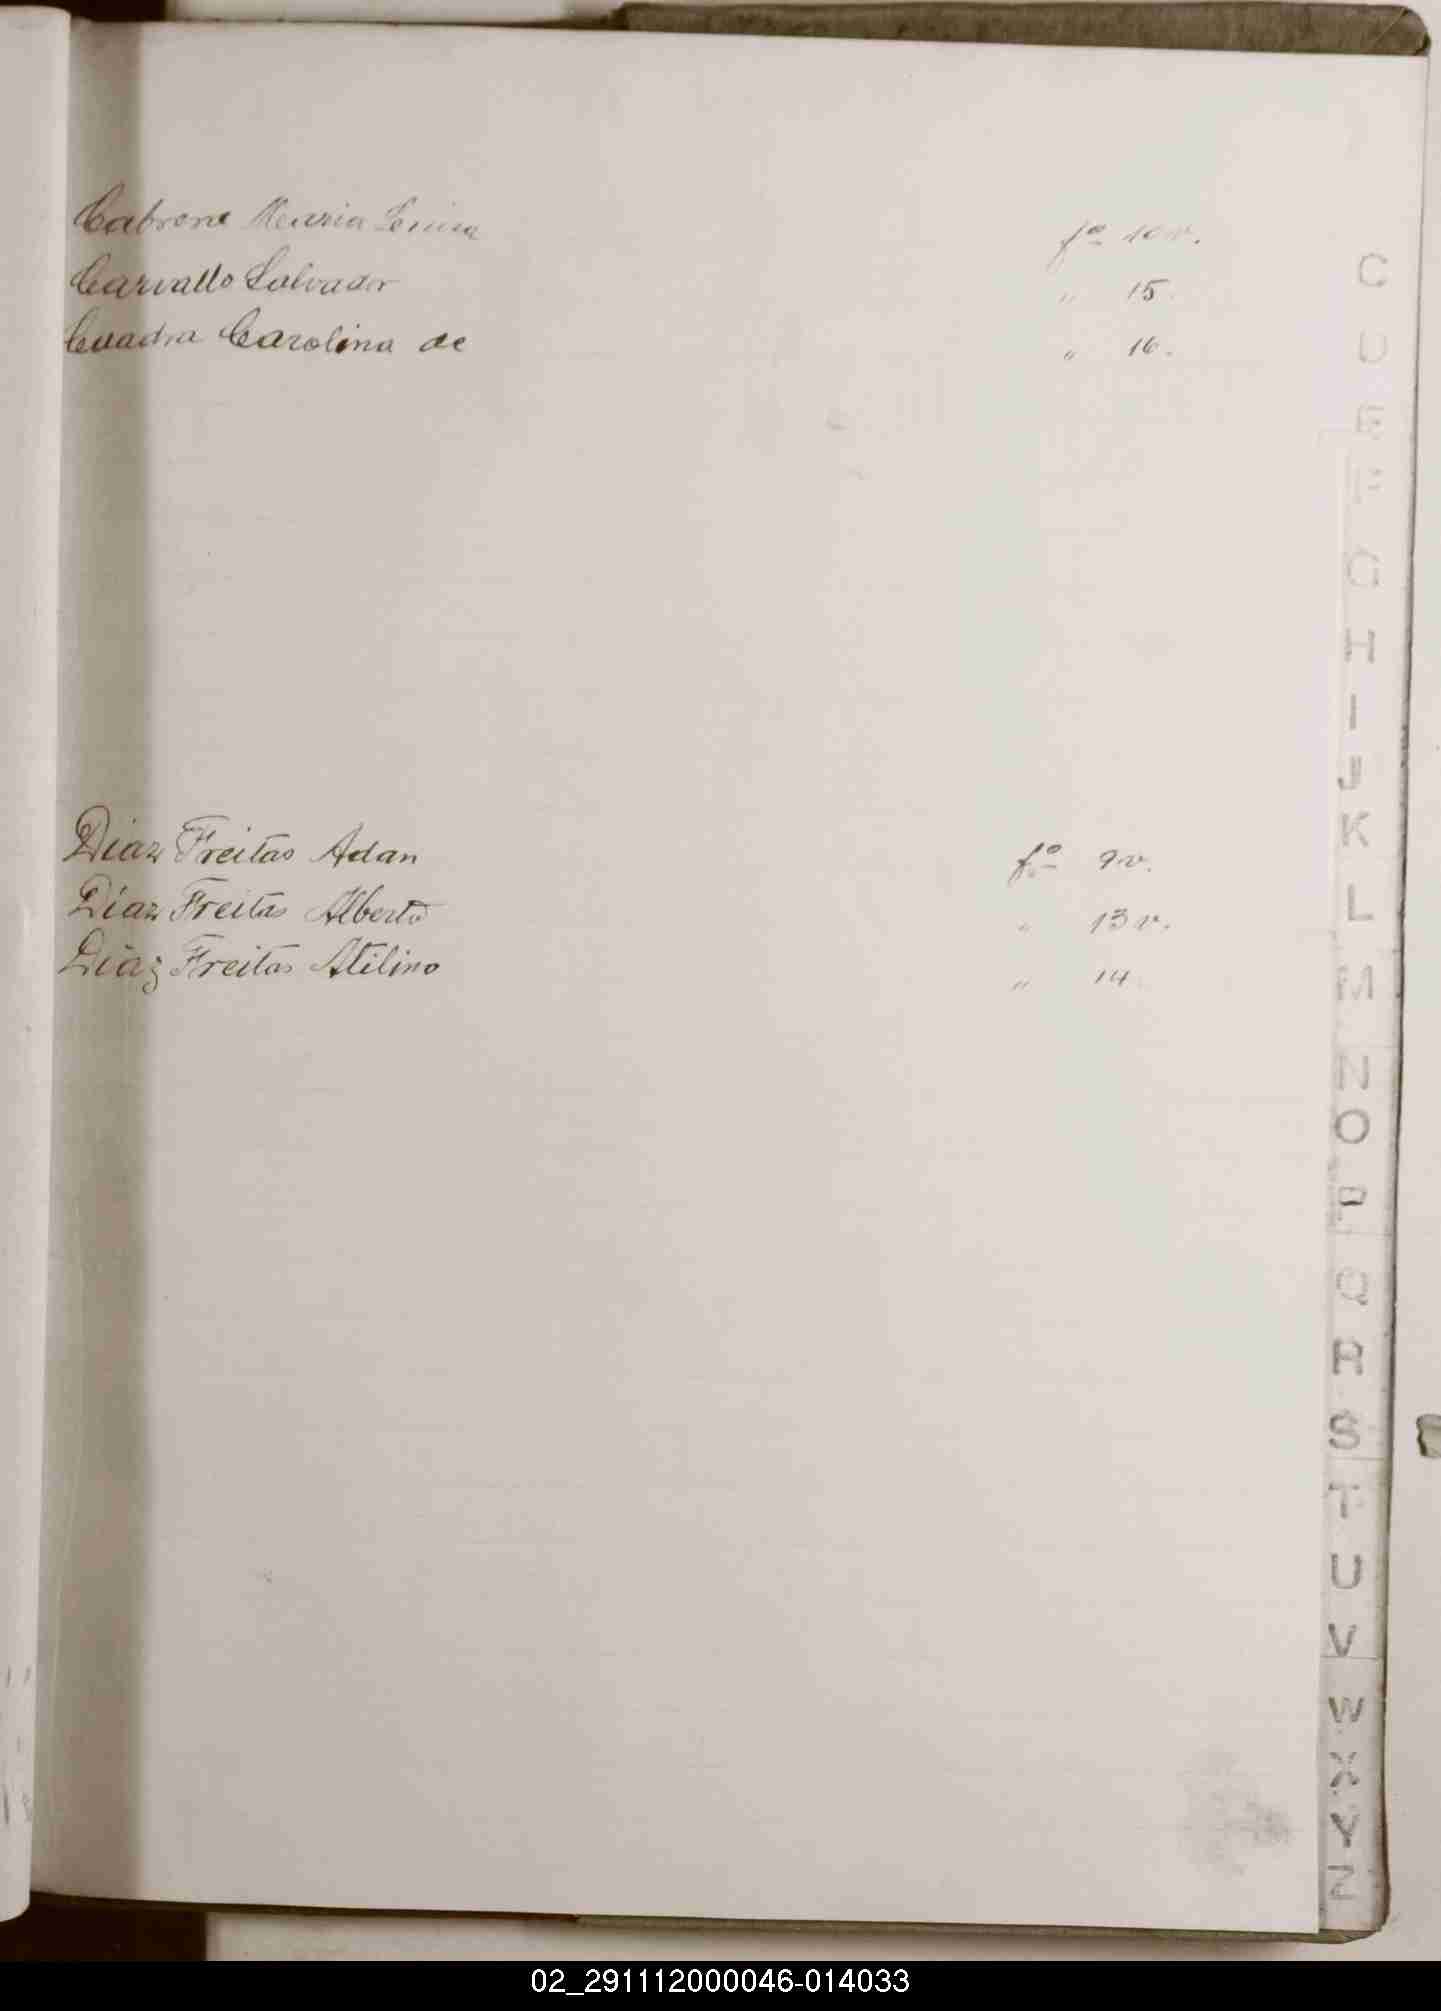 Cabrone Maria Luisa fº 10 v.
Carvallo Salvador " 15.
Cuadra Carolina de " 16.
Diaz Freitas Adan fº 9 v.
Diaz Freitas Alberto " 13 v.
Diaz Freitas Atilino " 14.
C
D
E
F
G
H
I
J
K
L
M
N
O
P
Q
R
S
T
U
V
W
X
Y
Z
02_291112000046-014033